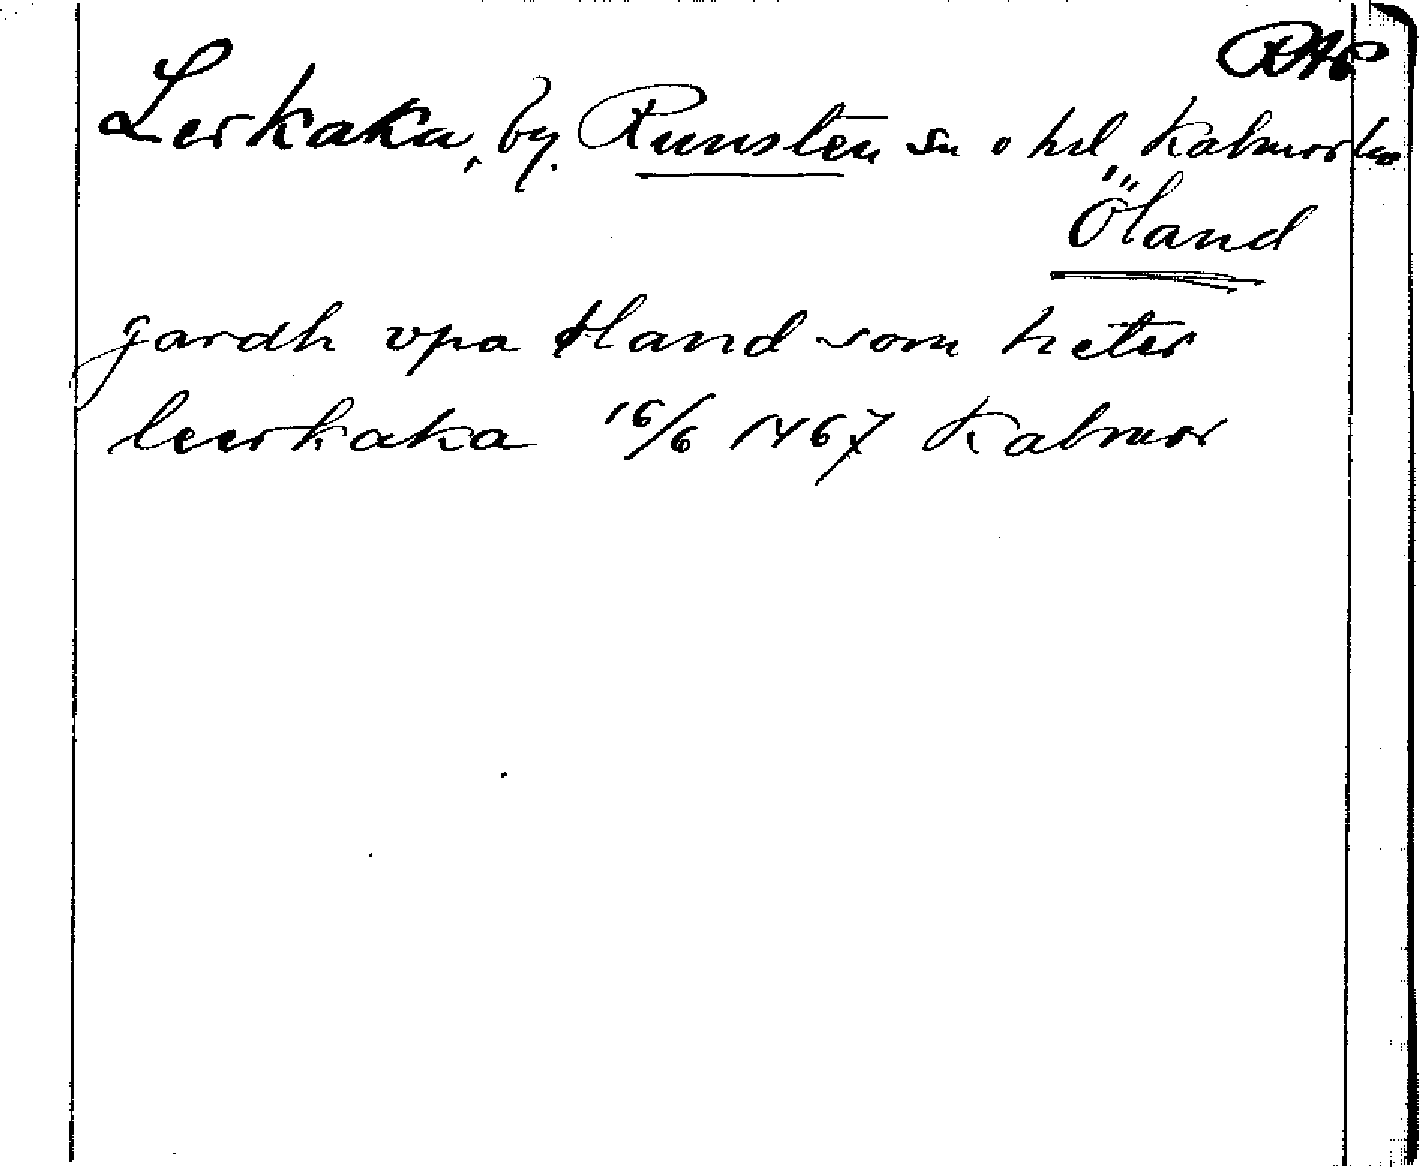 RAp
Lerkaka, by. Runsten sn o hd, Kalmar län
Öland
gardh vpa øland som heter
leerkaka 16/6 1467 Kalmar